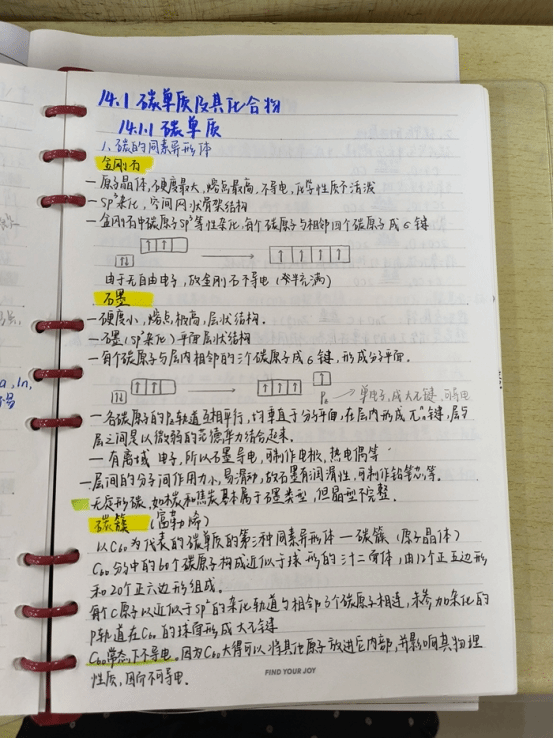 14.1 碳单质及其化合物
14.1.1 碳单质
1、碳的同素异形体
金刚石
一原子晶体，硬度最大，熔点最高，不导电，化学性质不活泼
一 sp³杂化，空间网状骨架结构
一金刚石中碳原子sp³等性杂化，每个碳原子与相邻四个碳原子成σ键
↑↓ ↑ ↑ → ↑ ↑ ↑ ↑
由于无自由电子，故金刚石不导电（半充满）
石墨
一硬度小，熔点极高，层状结构。
一石墨（sp²杂化）平面层状结构
一每个碳原子与层内相邻的三个碳原子成σ键，形成分子平面。
↑↓ ↑ ↑ → ↑ ↑ ↑ ↑
Pz → 单电子，成大π键，可导电
一各碳原子的Pz轨道互相平行，均垂直于分子平面，在层内形成πₙⁿ键，层与
层之间是以微弱的范德华力结合起来。
一有离域电子，所以石墨导电，可制作电极，热电偶等
一层间的分子间作用力小，易滑动，故石墨有润滑性，可制作铅笔芯等。
无定形碳，如木炭和焦炭基本属于石墨类型，但晶型不完整。
碳簇（富勒烯）
以C60为代表的碳单质的第三种同素异形体一碳簇（原子晶体）
C60分子中的60个碳原子构成近似于球形的三十二面体，由12个正五边形
和20个正六边形组成。
每个C原子以近似于sp²的杂化轨道与相邻3个碳原子相连，未参加杂化的
P轨道在C60的球面形成大π键
C60常态下不导电。因为C60大得可以将其他原子放进它内部，并影响其物理
性质，因而不可导电。
FIND YOUR JOY